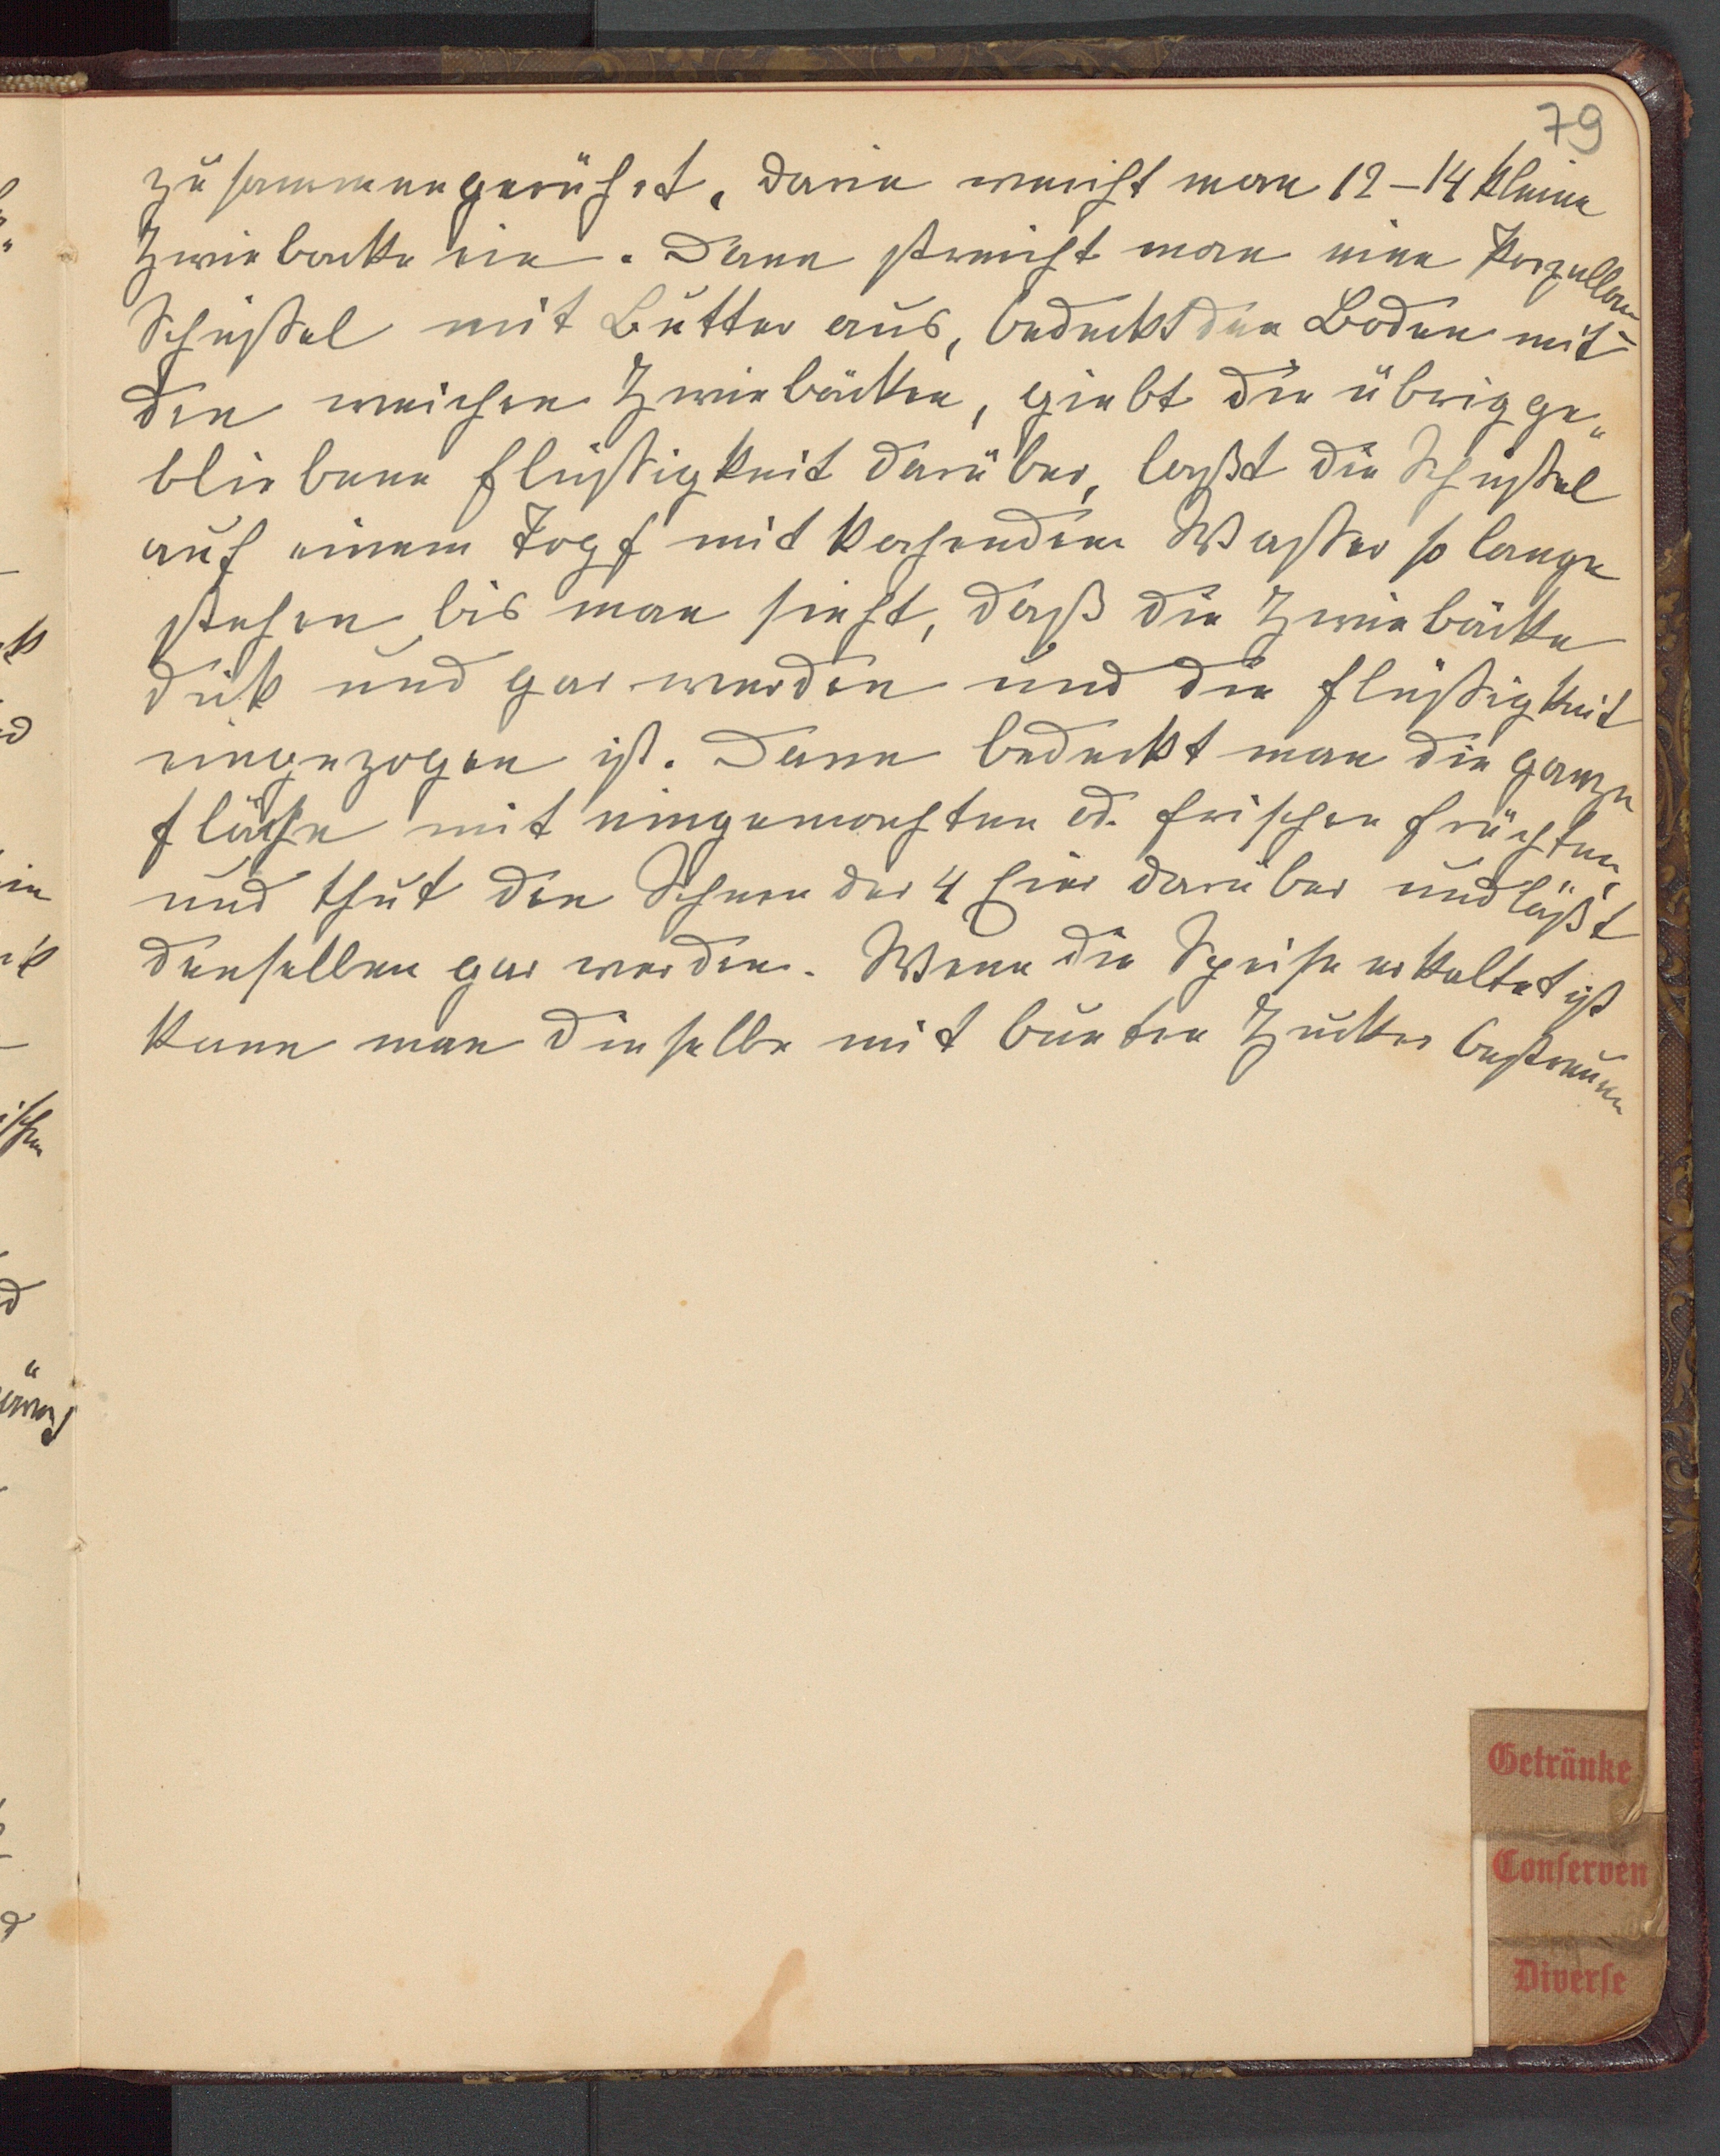 79
zusammengerührt, darin weicht man 12–14 kleine
Zwiebacke ein. Dann streicht man eine Porzellan
Schüssel mit Butter aus, bedeckt den Boden mit
den weichen Zwiebäcken, giebt die übrigge„
bliebene Flüssigkeit darüber, laßt die Schüssel
auf einem Topf mit kochendem Wasser so lange
stehen bis man sieht, daß die Zwiebäcke
dick und gar werden und die Flüssigkeit
eingezogen ist. Dann bedeckt man die ganze
Fläche mit eingemachten od. frischen Früchten,
und thut den Schnee der 4 Eier darüber und läßt
denselben gar werden. Wenn die Speise erkaltet ist
kann man dieselbe mit bunten Zucker bestreuen
Getränke
Conserven
Diverse